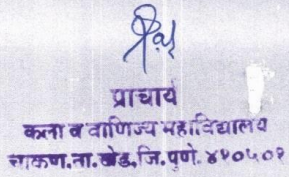 प्राचार्य
कला व वाणिज्य महाविद्यालय
चाकण, ता. खेड, जि. पुणे. ४१०५०१